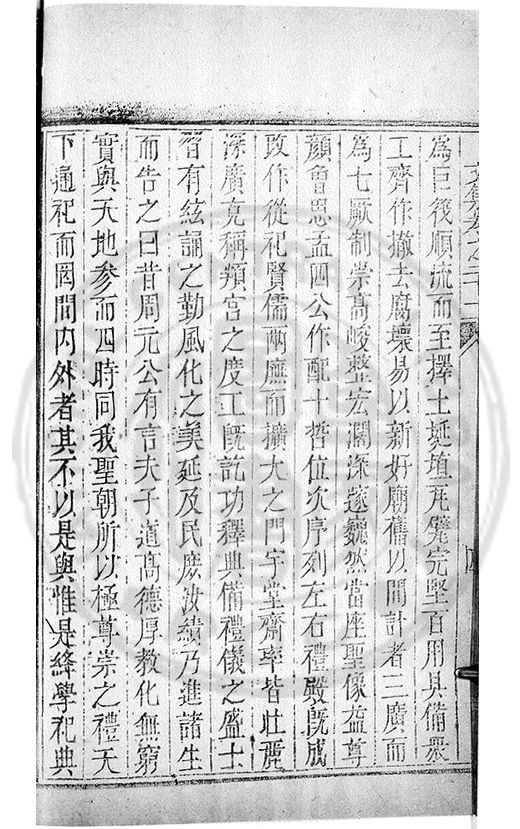 文集卷之二十二
為巨筏順流而至擇土埏埴瓦甓完堅百用具備衆
工齊作撤去腐壞易以新好廟舊以間計者三廣而
為七厥制崇高峻整宏濶深邃巍然當座聖像益尊
顏曾思孟四公作配十哲位次序列左右禮殿既成
改作從祀賢儒兩廡而擴大之門宇堂齋率皆壯麗
深廣克稱頖宮之度工既訖功釋典備禮儀之盛士
習有絃誦之勤風化之美延及民庶汝績乃進諸生
而告之曰昔周元公有言夫子道高德厚教化無窮
實與天地參而四時同我聖朝所以極尊崇之禮天
下通祀而罔間內外者其不以是與惟是絳學祀典